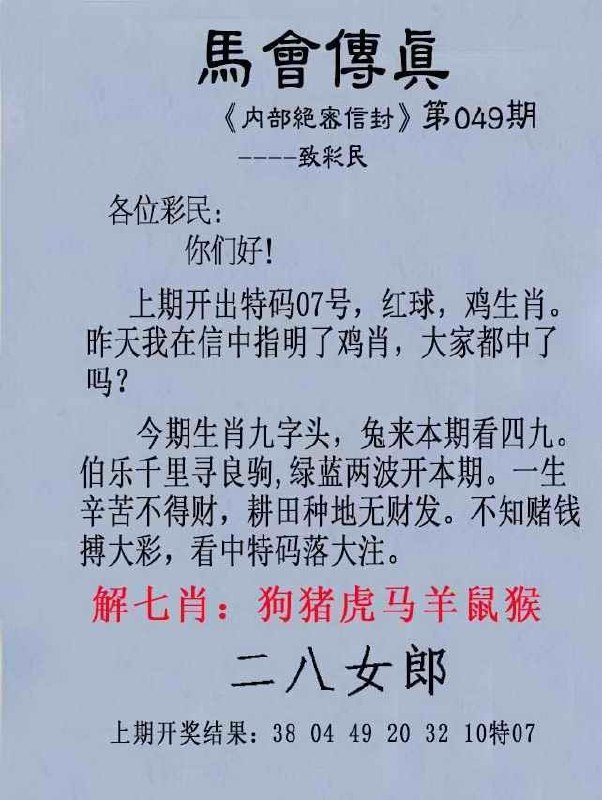 馬會傳眞
《内部絕密信封》第049期
----致彩民
各位彩民:
你们好!
上期开出特码07号，红球，鸡生肖。
昨天我在信中指明了鸡肖，大家都中了
吗?
今期生肖九字头，兔来本期看四九。
伯乐千里寻良驹,绿蓝两波开本期。一生
辛苦不得财，耕田种地无财发。不知赌钱
搏大彩，看中特码落大注。
解七肖：狗猪虎马羊鼠猴
二八女郎
上期开奖结果：38 04 49 20 32 10特07